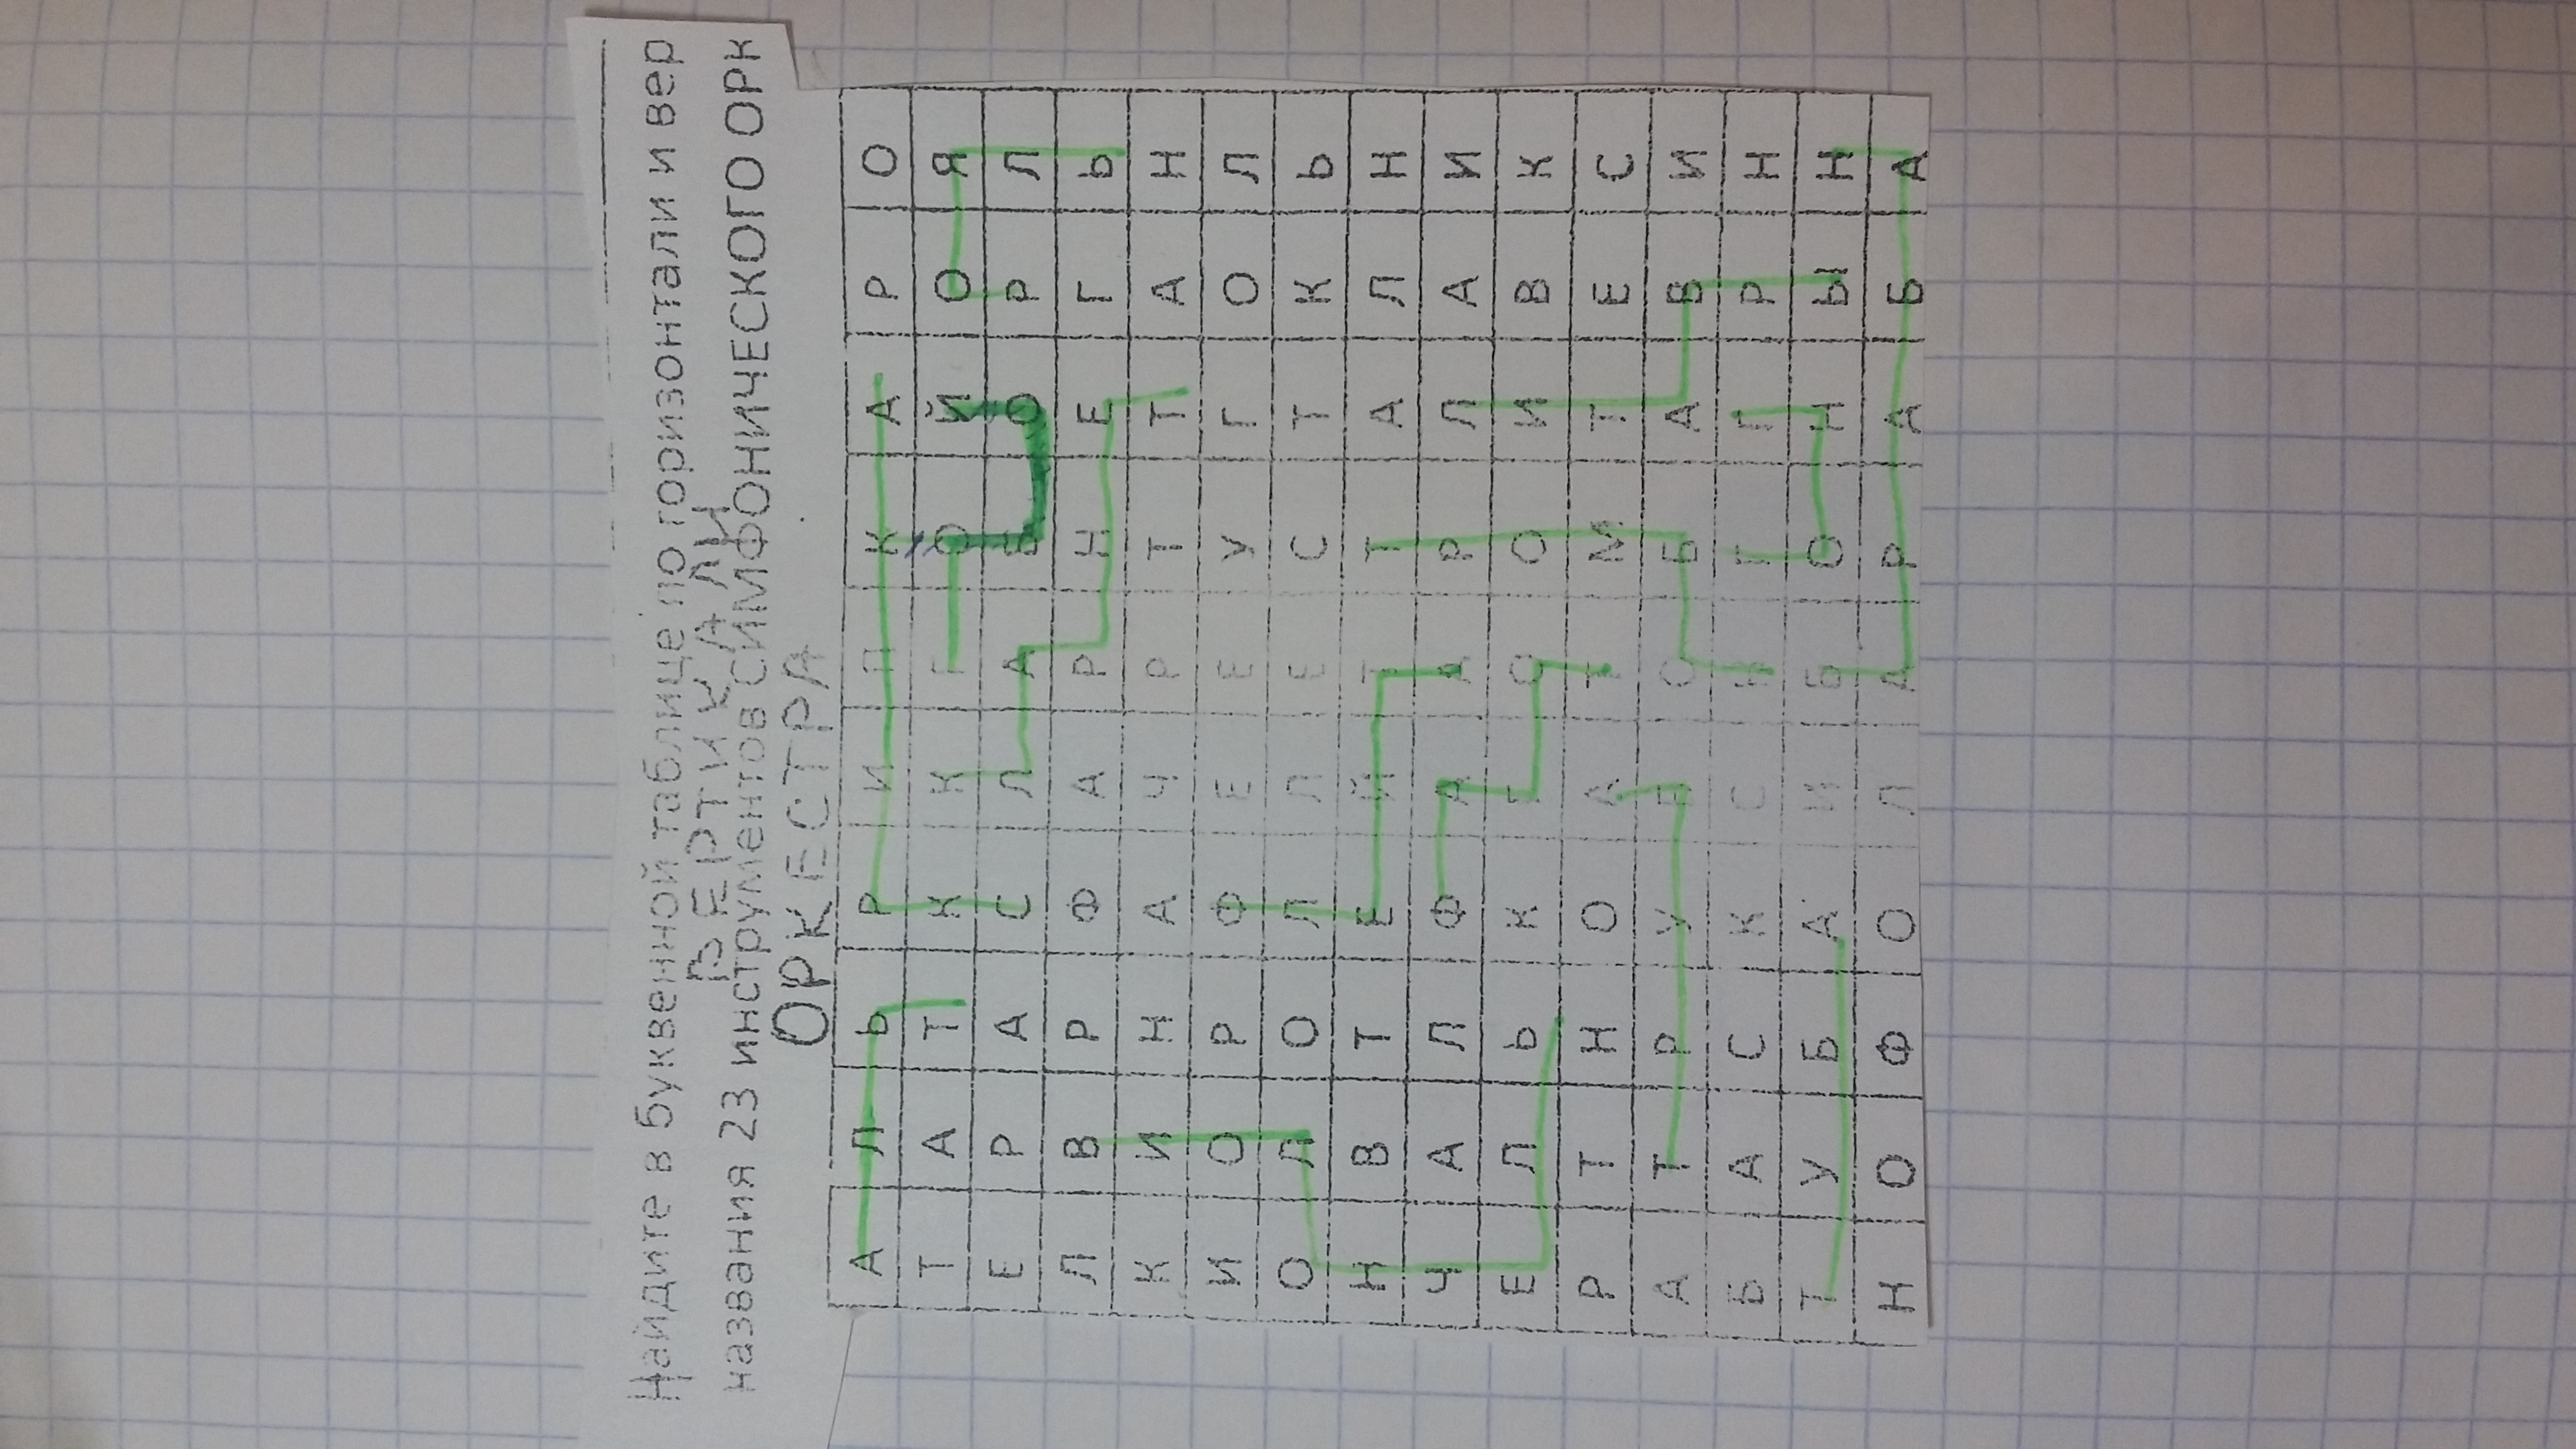 Найдите в буквенной таблице по горизонтали и вер
ВЕРТИКАЛИ
названия 23 инструментов СИМФОНИЧЕСКОГО ОРК
ОРКЕСТРА
А Л Ь Р И П К А Р О
Т А Т К К Г О Й О Я
Е Р А С Л А Б О Р Л
Л В Р Ф А Р Н Е Г Ь
К И Н А Ч Р Т Т А Н
И О Р Ф Е Е У Г О Л
О Л О Л Л Е С Т К Ь
Н В Т Е Й Т Т А Л Н
Ч А Л Ф А А Р Л А И
Е Л Ь К Г О О И В К
Р Т Н О А Т М Т Е С
А Т Р У Б О Б А В И
Б А С К С Н Г Г Р Н
Т У Б А И Б О Н Ы Н
Н О Ф О Л А Р А Б А